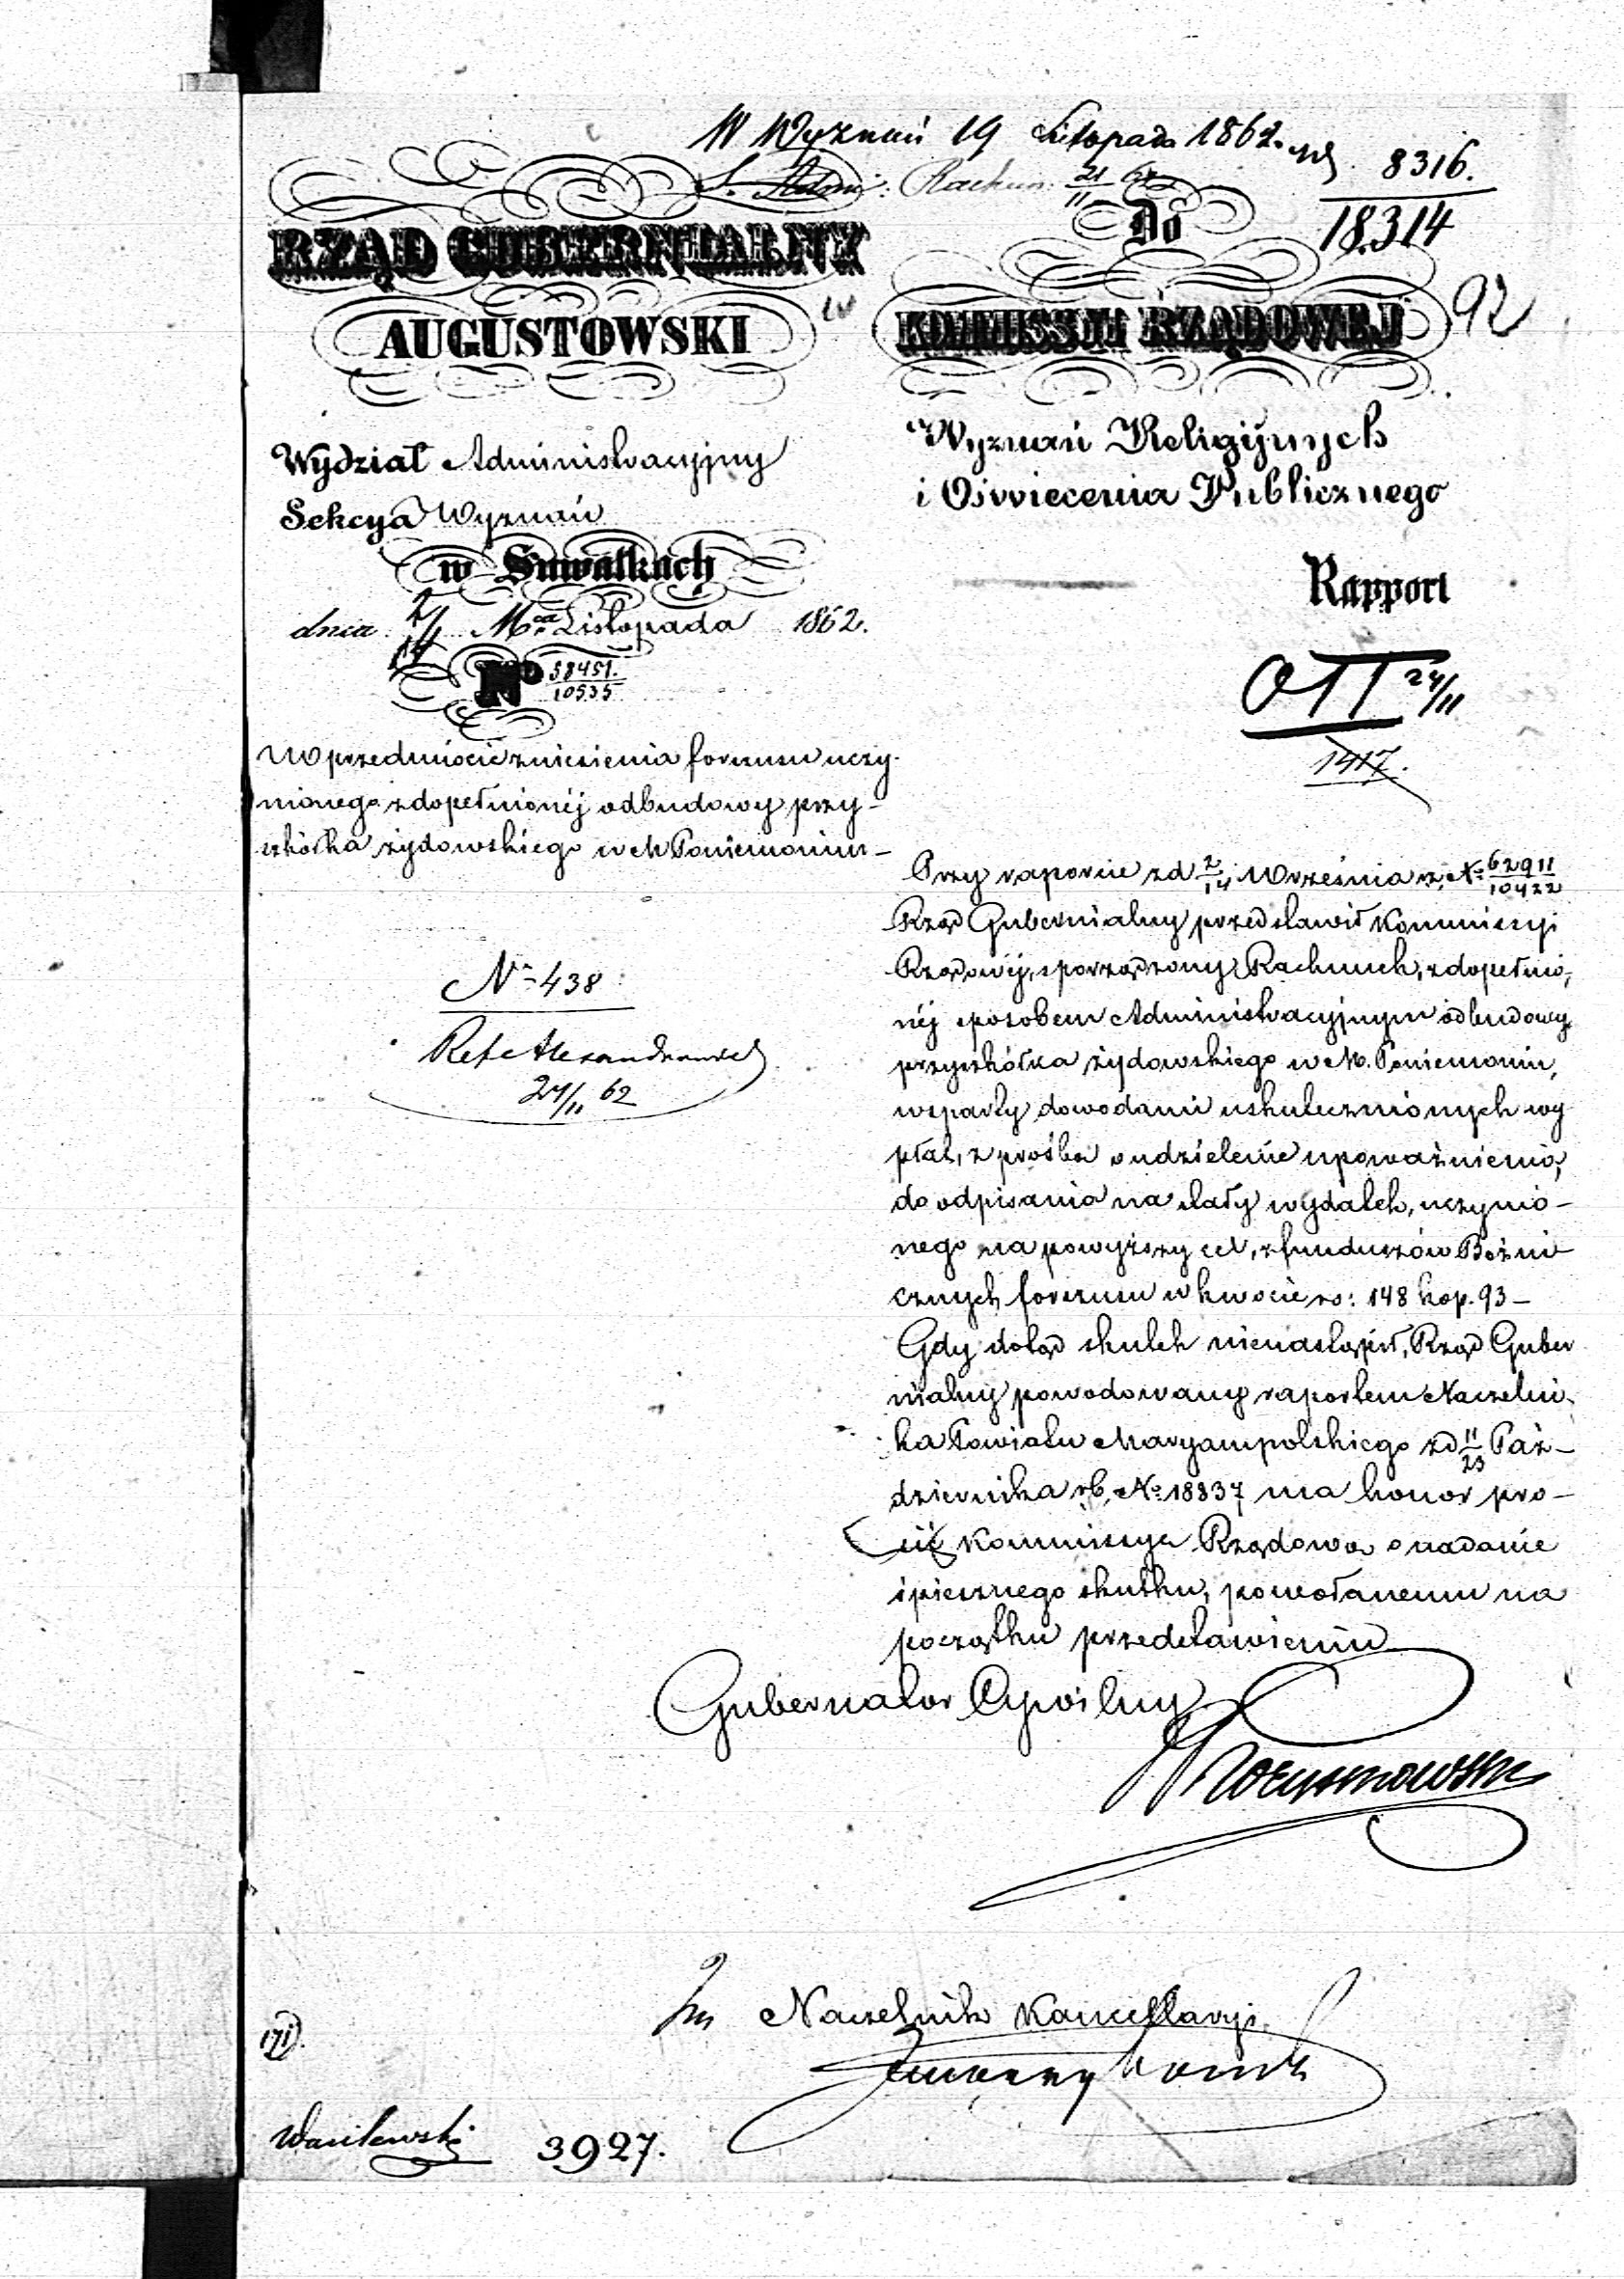 W Wyznań 19 Listopada 1862.
8316.
Rachun: 21/11 62
18314
RZĄD GUBERNIALNY
AUGUSTOWSKI
Do
KOMMISSJI RZĄDOWEJ
92
Wydział Administracyjny
Sekcya Wyznań
w Suwałkach
dnia 2/14 Mca Listopada 1862.
No 58451./10535
Wyznań Religijnych
i Oświecenia Publicznego
Rapport
24/11
1417.
W przedmiocie zniesienia forszusu uczy-
nionego z dopełnionéj odbudowy przy-
szkółka żydowskiego w M Poniemoniu-
No 438
Refe
24/11 62
Przy raporcie z d 2/14 Września r. b. No 62911/10422
Rząd Gubernialny przedstawił Kommissyi
Rządowéj, sporządzony Rachunek, z dopełnio-
néj sposobem Administracyjnym odbudowy
przyszkółka żydowskiego w M. Poniemoniu,
wsparty dowodami uskutecznionych wy
płat, z prośbą o udzielenie upoważnienia,
do odpisania na stały wydatek, uczynio-
nego na powyższy cel, z funduszów Bożni-
cznych forszusu w kwocie rs: 148 kop. 93-
Gdy dotąd skutek nienastąpił, Rząd Guber
nialny powodowany raportem Naczelni-
ka Powiatu Maryampolskiego z d 11/23 Paź-
dziernika rb. No 18337 ma honor pro-
sić Kommissyą Rządową o nadanie
śpiesznego skutku, powołanemu na
początku przedstawieniu
Gubernator Cywilny
Naczelnik Kancellaryi
Wasilewski
3927.